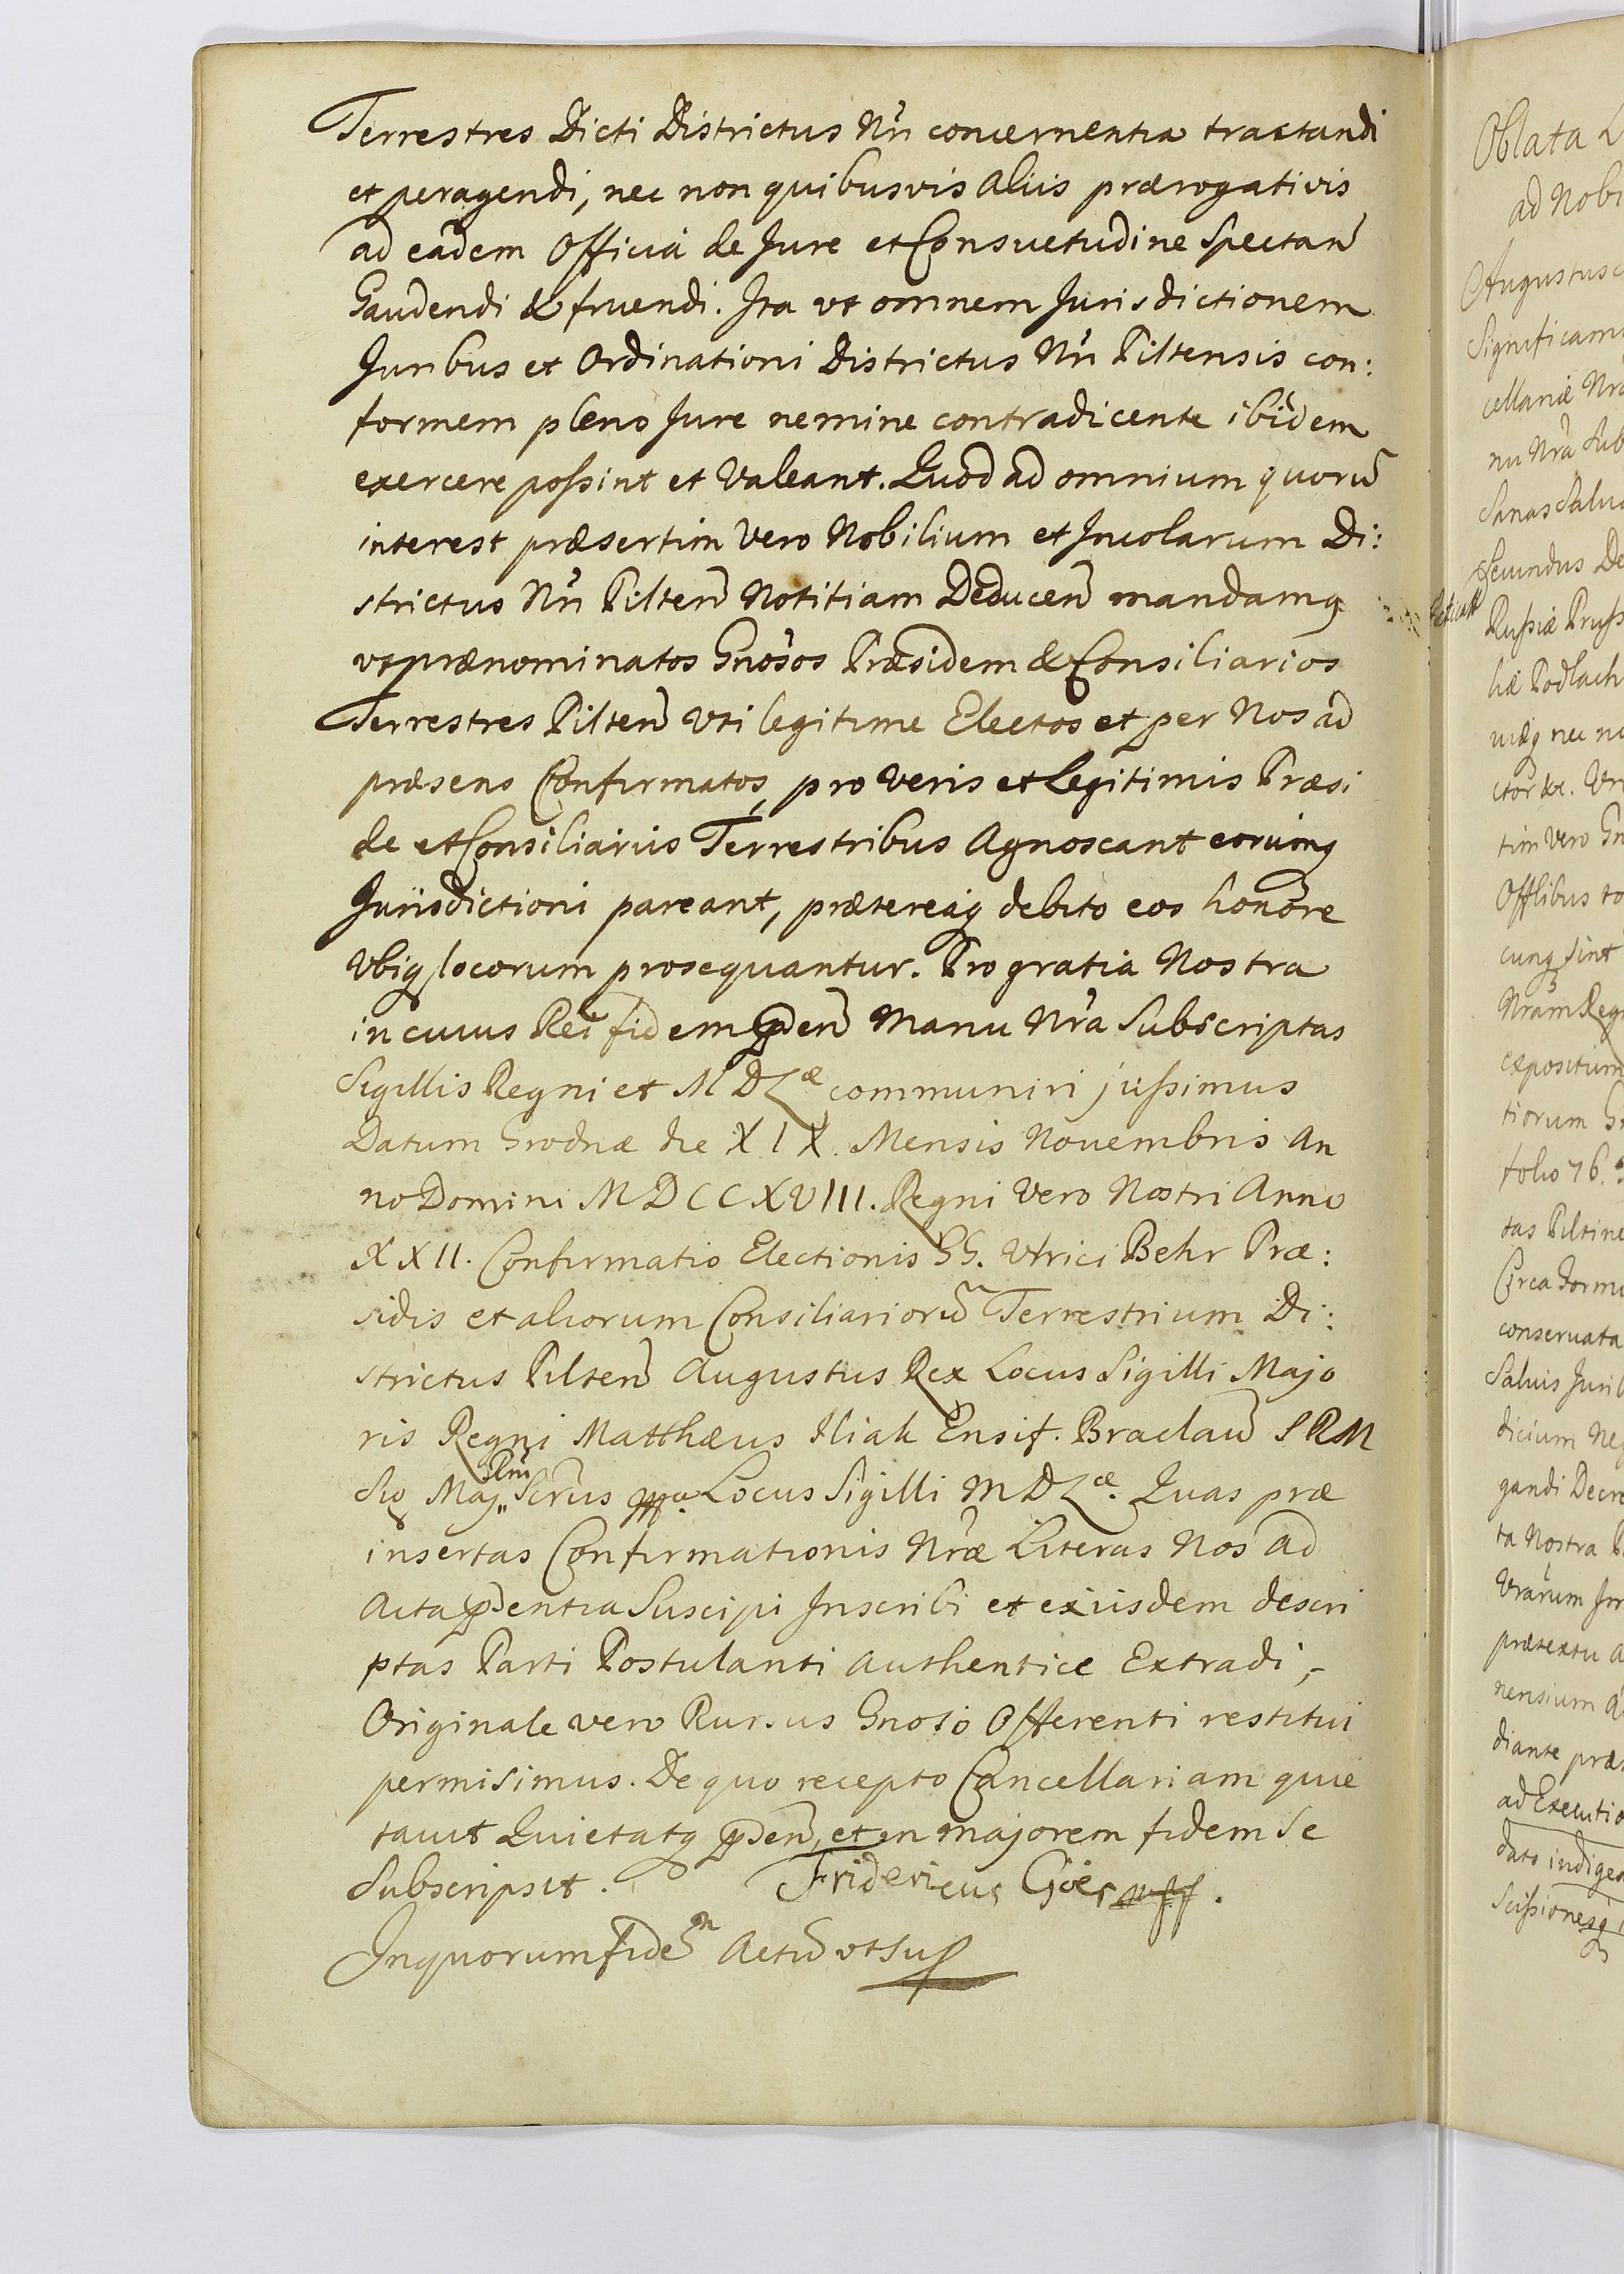 Terrestres Dicti Districtus Nri concernentia tractandi
et peragendi, nec non quibusvis aliis prærogativis
ad eadem Officia de Jure et Consuetudine Spectan
Gaudendi & fruendi. Ita vt omnem Jurisdictionem
Juribus et Ordinationi Districtus Nri Piltensis con:
formem pleno Jure nemine contradicente ibidem
exercere possint et Valeant. Quod ad omnium quorũ
interest præsertim Vero Nobilium et Incolarum Di:
strictus Nri Pilten Notitiam Deducen mandamq
vt prænominatos Gnosos Præsidem & Consiliarios
Terrestres Pilten Vti legitime Electos et per Nos ad
præsens Confirmatos, pro Veris et Legitimis Præsi
de et Consiliariis Terrestribus Agnoscant eorumq
Jurisdictioni pareant, prætereaq debito eos honore
Vbiq locorum prosequantur. Pro gratia Nostra
in cuius Rei fidem pden Manu Nra Subscriptas
Sigillis Regni et M D Læ communiri jussimus
Datum Grodnæ die XIX. Mensis Nouembris An
no Domini MDCCXVIII. Regni Vero Nostri Anno
XXII. Confirmatio Electionis GG. Vlrici Behr Præ:
sidis et aliorum Consiliariorũ Terrestrium Di:
strictus Pilten Augustus Rex Locus Sigilli Majo
ris Regni Matthæus Iliak Ensif. Braclaw S R M
Locus Sigilli M D Læ. Quas præ
insertas Confirmationis Nræ Literas Nos ad
Acta pdentia Suscipi Inscribi et exiisdem descri
ptas Parti Postulanti Authentice Extradi,
Originale vero Rursus Gnoso Offerenti restitui
permisimus. De quo recepto Cancellariam quie
tauit Quietatq pden, et in majorem fidem Se
Subscripsit. Fridericus Goes
In quorum fidem Actũ vt sup
Oblata
ad Nobi
Augustus
Significam
cellariæ Nr
nu Nra Sub
Sanas Salu
Secundus De
Russiæ Pruss
hiæ Podlach
uiæq nec no
ctor &c. Vn
tim Vero Gn
Offlibus to
cunq sint
Nram Reg
expositum
tiorum G
folio 76.
tas Piltine
Circa Form
conseruata
Saluis Jurib
dicium Neg
gandi Decre
ta Nostra P
Vrarum In
prætextu a
nensium a
diante præ
ad Executio
dato indigea
Scissionesq